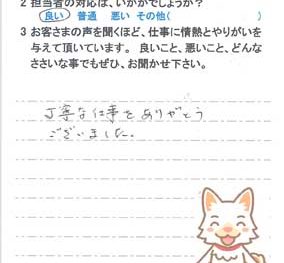 2 担当者の対応は、いかがでしょうか?
良い 普通 悪い その他( )
3 お客さまの声を聞くほど、仕事に情熱とやりがいを
与えて頂いています。 良いこと、悪いこと、どんな
ささいな事でもぜひ、お聞かせ下さい。
丁寧な仕事をありがとう
ございました。